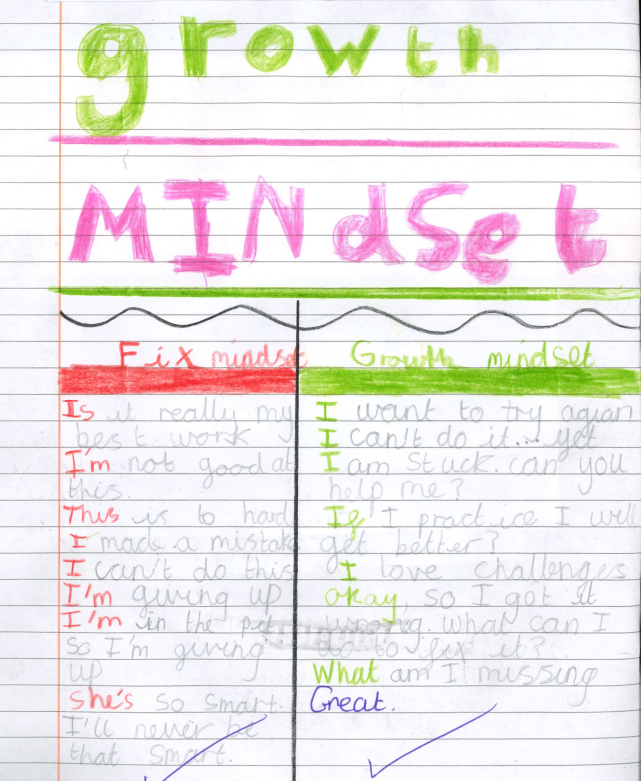 growth
MINdSet
Fix mindset
Is it really my
best work
I'm not good at
this.
This is to hard
I made a mistake
I can't do this
I'm giving up
I'm in the pit
so I'm giving
up
She's so smart.
I'll never be
that smart.
Growth mindset
I want to try agian
I can't do it... yet
I am stuck. can you
help me?
If I practice I will
get better?
I love challenges
okay, so I got it
wrong. what can I
do to fix it?
What am I missing
Great.